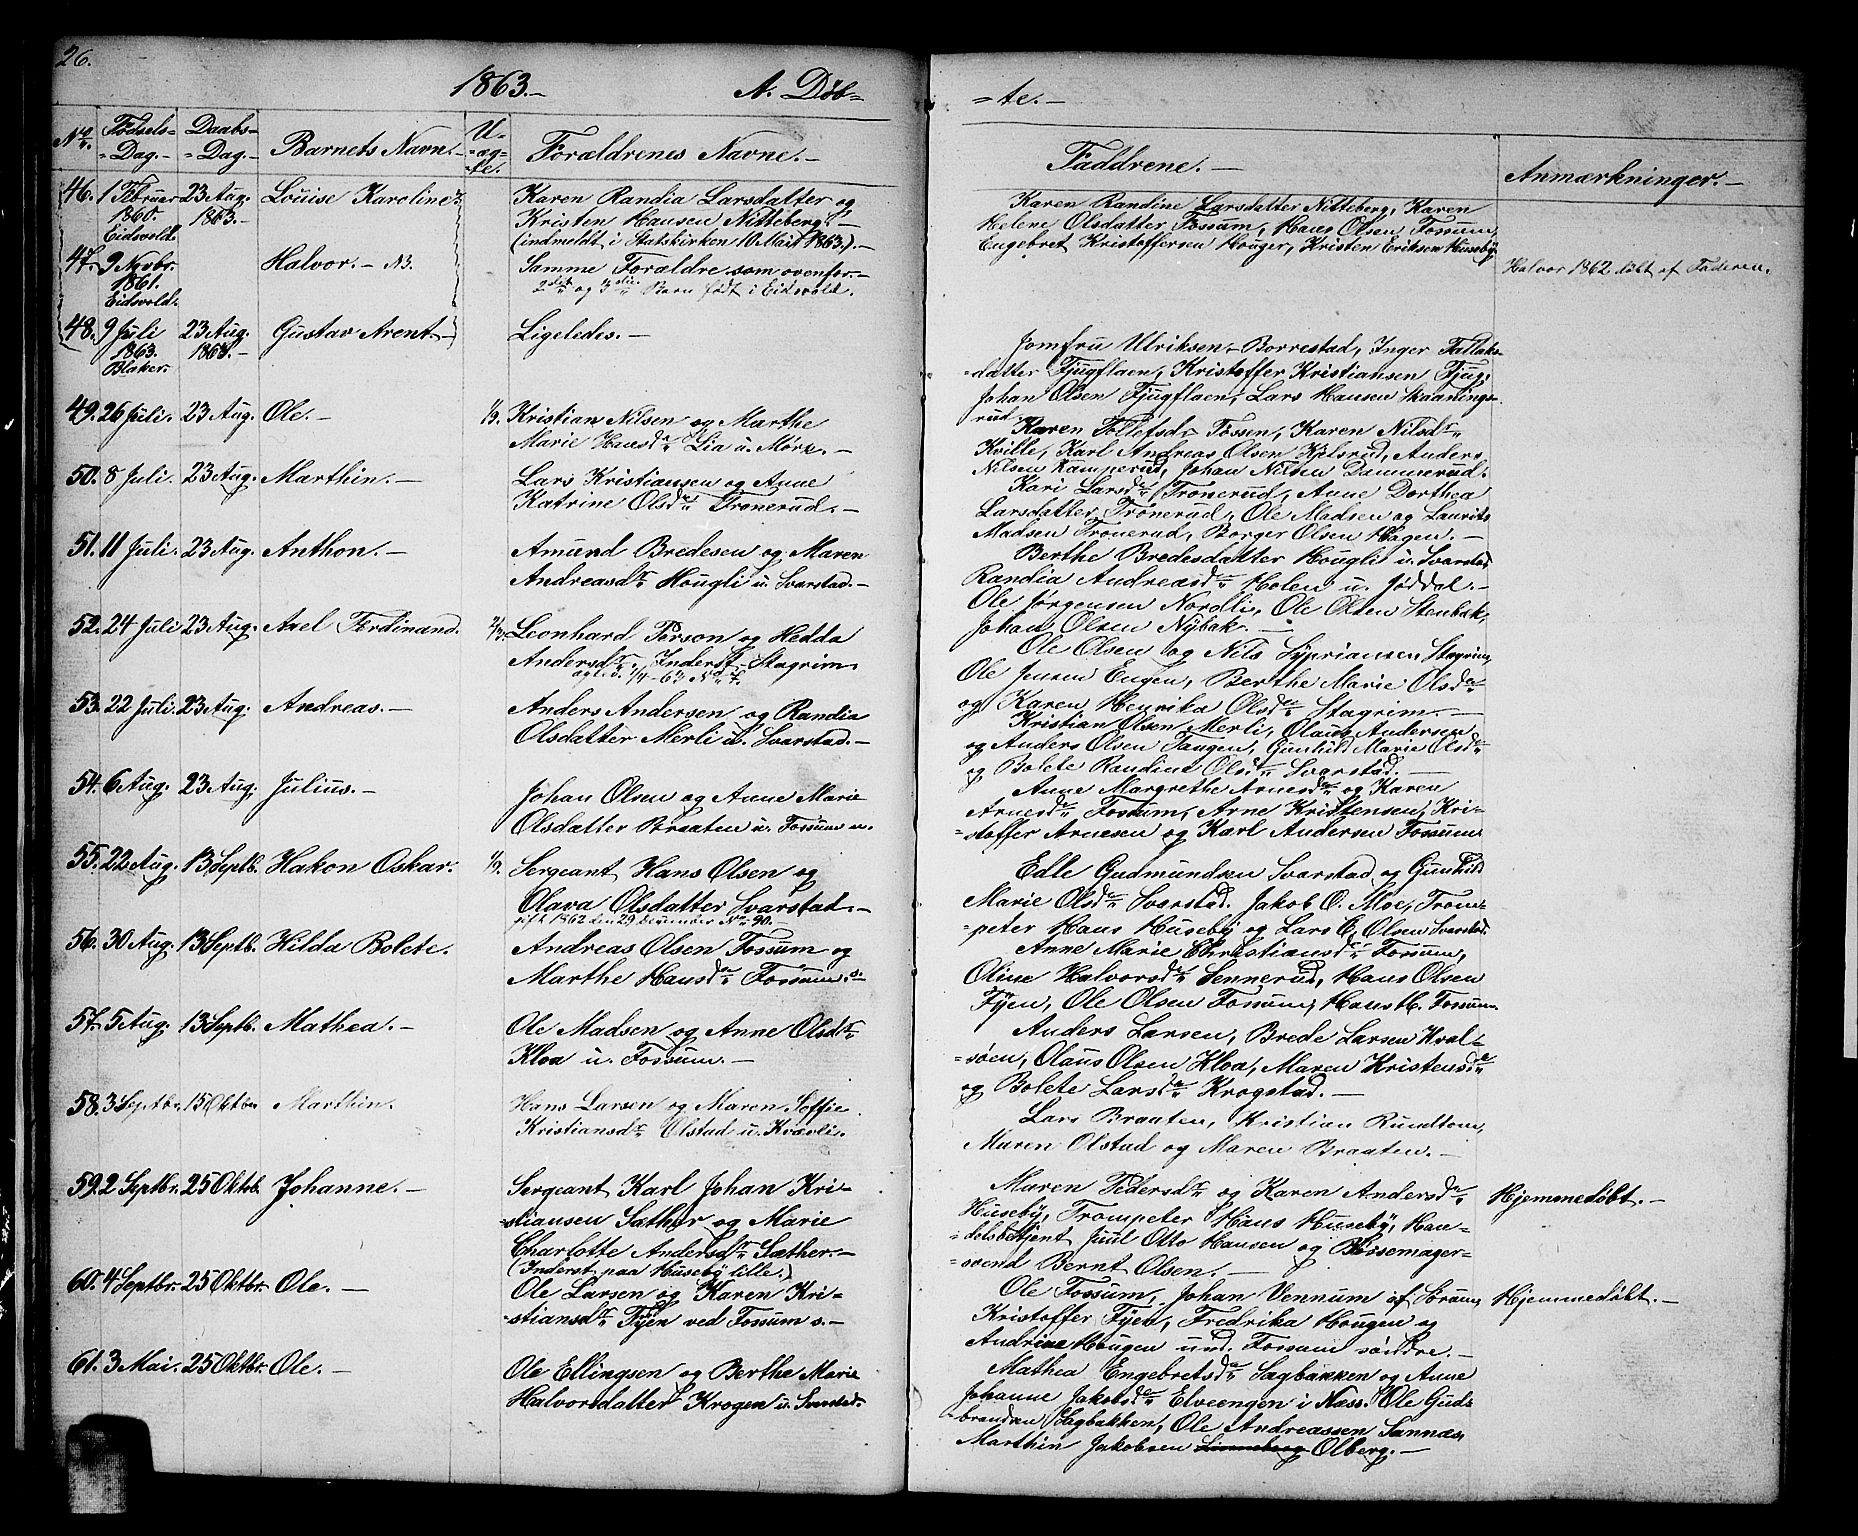 26.
1863.- A. Døb=
=te.-
No. Fødsels= =Dag.- Daabs= =Dag.- Barnets Navn.- U= =æg= =te. Forældrenes Navne.- Faddrene.- Anmærkninger.-
46. 1 Februar 1860. Eidsvold. 23 Aug. 1863.- Louise Karoline.
Karen Randia Larsdatter og
Kristen Hansen Nitteberg.-
(indmeldt i Statskirken 10 Mai 1863).-
Karen Randine Larsdatter Nitteberg, Karen
Helene Olsdatter Fossum, Hans Olsen Fossum,
Engebret Kristoffersen Houger, Kristen Eriksen Huseby
47. 9 Novbr. 1861. Eidsvold. Halvor.-
Samme Forældre som ovenfor.-
2det og 3die Barn født i Eidsvold.
Halvor 1862 døbt af Faderen.
48. 9 Juli 1863. Blaker. 23 Aug. 1863.- Gustav Arent.-
Ligeledes.-
Jomfru Ulriksen-Borrestad, Inger Tallaks=
=datter Fjugflaen, Kristoffer Kristiansen Fjug,
Johan Olsen Fjugflaen, Lars Hansen Skaanings=
rud.
49. 26 Juli. 23 Aug. Ole.-
Kristian Nilsen og Marthe
Marie Hansdr Lia u. Mørk.-
Karen Tollefsdr Fossen, Karen Nilsdr
Kville, Karl Andreas Olsen Kjelsrud, Anders
Nilsen Kamperud, Johan Nilsen Dammerud.
50. 8 Juli. 23 Aug. Marthin.-
Lars Kristiansen og Anne
Katrine Olsdr Tronerud.-
Kari Larsdr Tronerud, Anne Dorthea
Larsdatter Tronerud, Ole Madsen og Laurits
Madsen Tronerud, Borger Olsen Hagen.-
51. 11 Juli. 23 Aug. Anthon.-
Amund Bredesen og Maren
Andreasdr Hougli u. Svarstad.-
Berthe Bredesdatter Hougli u. Svarstad
Randia Andreasdr Holen u. Jøddal.-
Ole Jørgensen Nordli, Ole Olsen Stenbak,
Johan Olsen Nybak.-
52. 24 Juli 23 Aug. Axel Ferdinand.
Leonhard Person og Hedda
Andersdr, Inderst Stagrim.
Ole Olsen og Nils Sypriansen Stagrim,
Ole Jensen Engen, Berthe Marie Olsdr
og Karen Henrika Olsdr Stagrim.-
53. 22 Juli. 23 Aug. Andreas.-
Anders Andersen og Randia
Olsdatter Merli u. Svarstad.-
Kristian Olsen Merli, Olaus Andersen
og Anders Olsen Taugen, Gunhild Marie Olsdr
og Bolete Randine Olsdr Svarstad.-
54. 6 Aug. 23 Aug. Julius.-
Johan Olsen og Anne Marie
Olsdatter Braaten u. Fossum n.
Anne Margrethe Arnesdr og Karen
Arnesdr Fossum, Arne Kristensen, Kri=
=stoffer Arnesen og Karl Andersen Fossum.
55. 22 Aug. 13 Septb. Hakon Oskar.
Sergeant Hans Olsen og
Olava Olsdatter Svarstad.-
gift 1862 den 29 december No 90.
Edle Gudmundsen Svarstad og Gunhild
Marie Olsdr Svarstad. Jakob O. Moe, Trom=
=peter Hans Huseby og Lars C. Olsen Svarstad.
56. 30 Aug. 13 Septb. Hilda Bolete.
Andreas Olsen Fossum og
Marthe Hansdr Fossum s.-
Anne Marie Christiansdr Fossum,
Oline Halvorsdr Sennerud, Hans Olsen
Fyen, Ole Olsen Fossum, Hans H. Fossum.
57. 5 Aug. 13 Septb. Mathea.-
Ole Madsen og Anne Olsdr
Kloa u. Fossum.-
Anders Larsen, Brede Larsen Kval=
=søen, Olaus Olsen Kloa, Maren Kristensdr
og Bolete Larsdr Krogstad.-
58. 3 Septbr. 15 Oktbr Marthin.
Hans Larsen og Maren Soffie
Kristiansdr Olstad u. Kvavli.
Lars Braaten, Kristian Rundtom,
Maren Olstad og Maren Braaten.-
59. 2 Septbr. 25 Oktb. Johanne.-
Sergeant Karl Johan Kri=
=stiansen Sæther og Marie
Charlotte Andersdr Sæther.-
(Inderst paa Huseby lille.)
Maren Pedersdr og Karen Andersdr
Huseby, Trompeter Hans Huseby, Han=
=delsbetjent Juul Otto Hansen og Bøssemager=
=svend Bernt Olsen.-
Hjemmedøbt.-
60. 4 Septbr. 25 Oktbr. Ole.-
Ole Larsen og Karen Kri=
=stiansdr Fyen ved Fossum s.-
Ole Fossum, Johan Vennum af Sørum,
Kristoffer Fyen, Fredrika Hougen og
Andrine Hougen und. Fossum søndre.-
Hjemmedøbt.-
61. 3 Mai. 25 Oktbr. Ole.-
Ole Ellingsen og Berthe Marie
Halvorsdatter Krogen u. Svarstad.
Mathea Engebretsdr Sagbakken og Anne
Johanne Jakobsdr Elveengen i Næss. Ole Gud=
=brandsn Sagbakken, Ole Andreassen Sannæs,
Marthin Jakobsen Limneborg Olberg.-